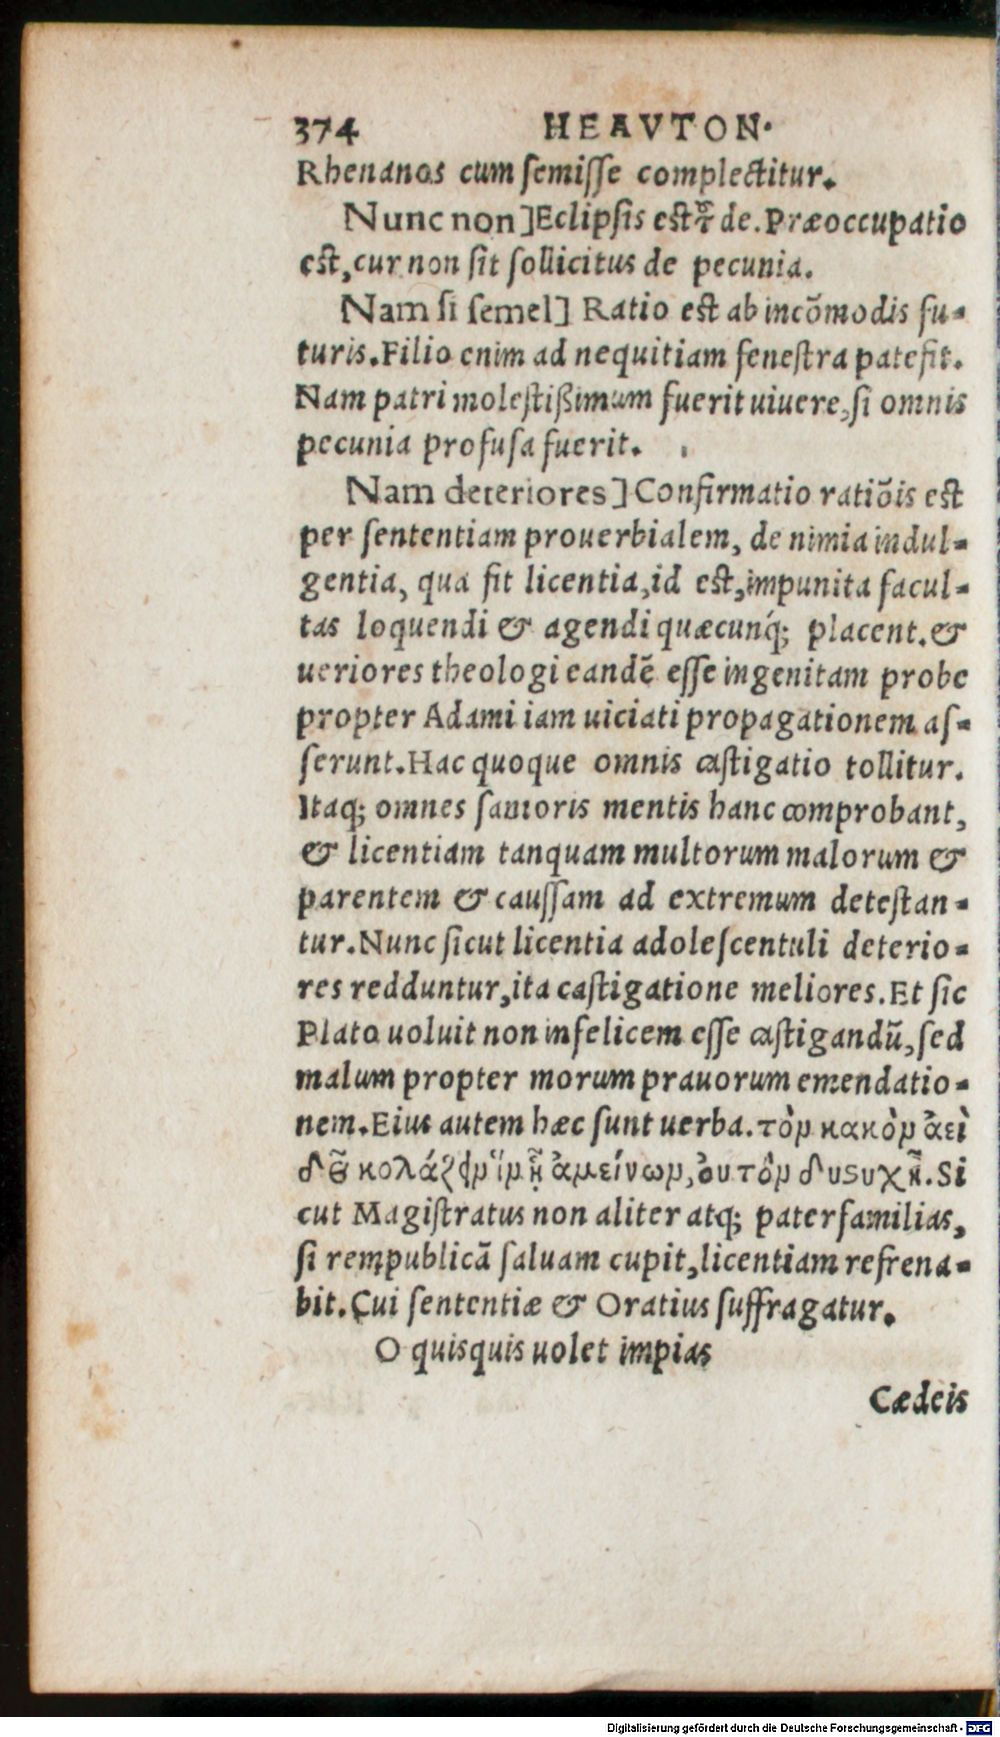 374 HEAVTON·
Rhenanos cum ſemiſſe complectitur.
Nunc non]Eclipſis est de.Præoccupatio
est,cur non ſit ſollicitus de pecunia.
Nam ſi ſemel] Ratio est ab incõmodis fu-
turis.Filio enim ad nequitiam feneſtra patefit.
Nam patri moleſtißimum fuerit uiuere,ſi omnis
pecunia profuſa fuerit.
Nam deteriores]Confirmatio ratiõis est
per ſententiam prouerbialem, de nimia indul-
gentia, qua fit licentia,id est,impunita facul-
tas loquendi & agendi quæcunq́; placent.&
ueriores theologi eandẽ eſſe ingenitam probe
propter Adami iam uiciati propagationem aſ-
ſerunt.Hac quoque omnis caſtigatio tollitur.
Itaq; omnes ſanioris mentis hanc comprobant,
& licentiam tanquam multorum malorum &
parentem & cauſſam ad extremum deteſtan-
tur.Nunc ſicut licentia adoleſcentuli deterio-
res redduntur,ita caſtigatione meliores.Et ſic
Plato uoluit non infelicem eſſe caſtigandũ,ſed
malum propter morum prauorum emendatio-
nem.Eius autem hæc ſunt uerba.τὸν κακὸν ἀεὶ
δεῖ κολάζειν ἵν ᾖ ἀμείνων,ὀυ τὸν δυςυχῆ.Si
cut Magiſtratus non aliter atq; paterfamilias,
ſi rempublicã ſaluam cupit,licentiam refrena-
bit.Cui ſententiæ & Oratius ſuffragatur.
O quisquis uolet impias
Cædeis
Digitalisierung gefördert durch die Deutsche Forschungsgemeinschaft - DFG